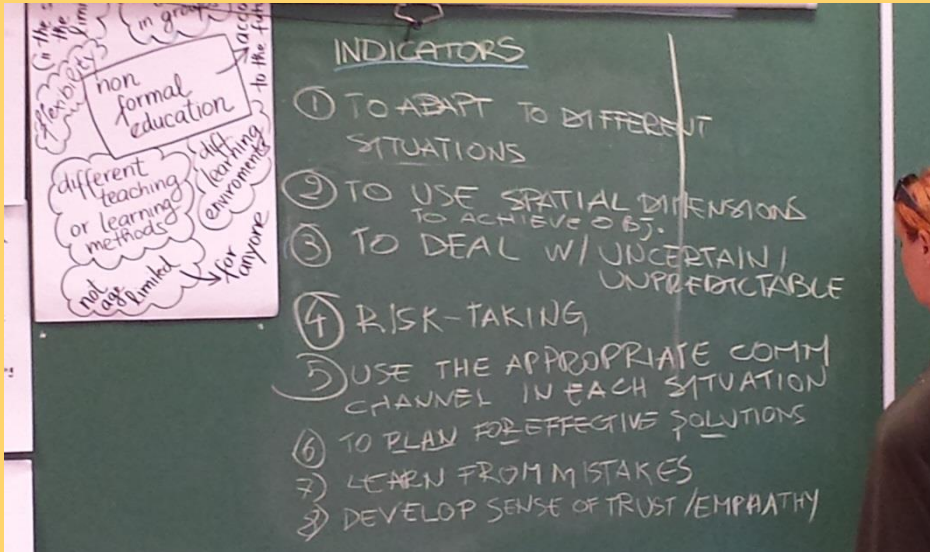 in group
to the fut
flexibility
non
formal
education
different
teaching
or learning
methods
diff
learning
enviroments
not
age
limited
for
anyone
INDICATORS
① TO ADAPT TO DIFFERENT
SITUATIONS
② TO USE SPATIAL DIMENSIONS
TO ACHIEVE OBJ.
③ TO DEAL W/ UNCERTAIN/
UNPREDICTABLE
④ RISK-TAKING
5) USE THE APPROPRIATE COMM
CHANNEL IN EACH SITUATION
⑥ TO PLAN FOR EFFECTIVE SOLUTIONS
7) LEARN FROM MISTAKES
8) DEVELOP SENSE OF TRUST/EMPHATHY